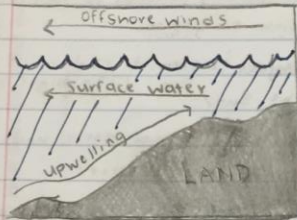 Offshore winds
Surface water
upwelling
LAND